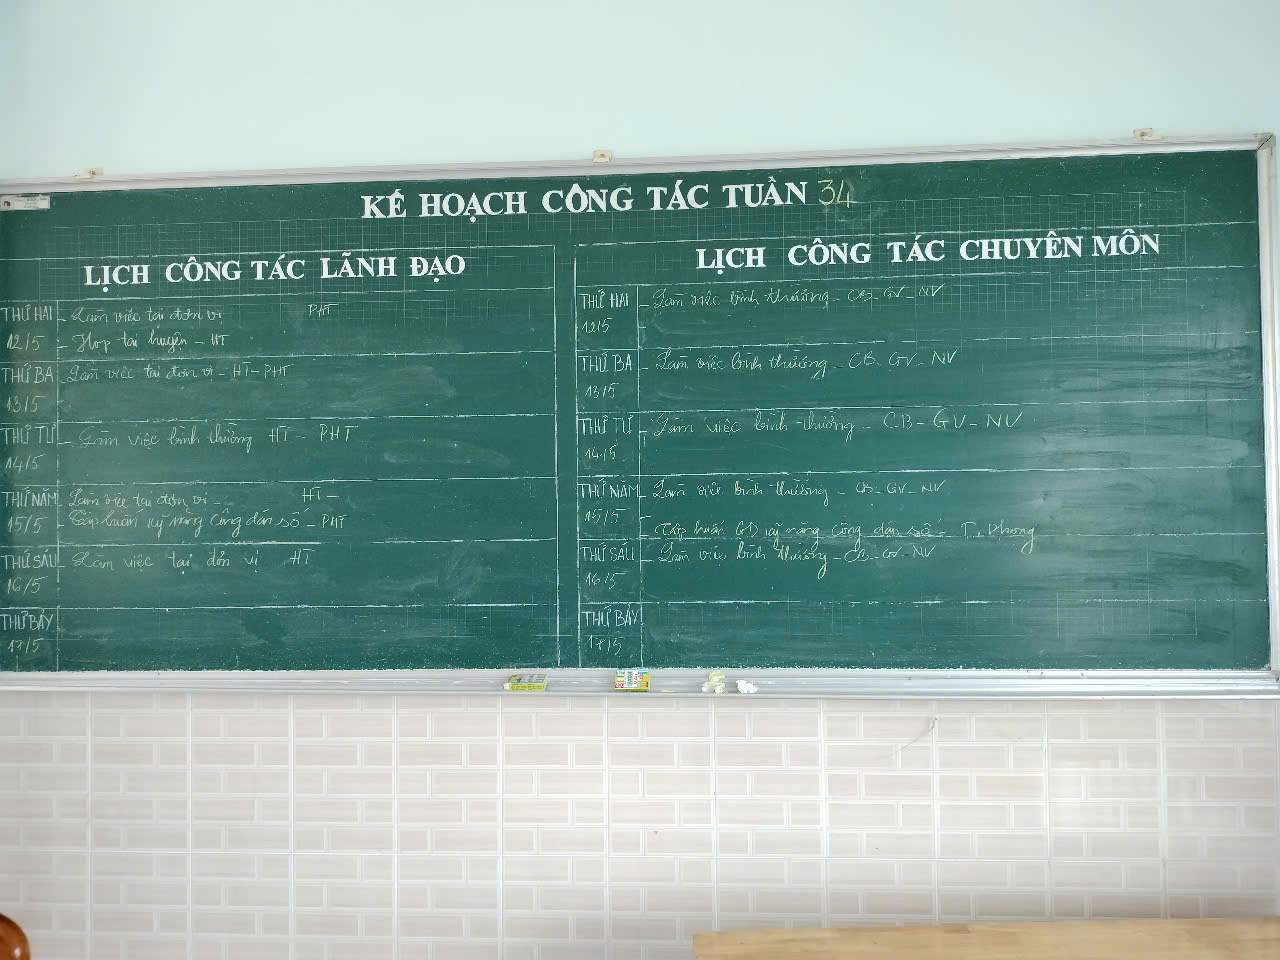 KẾ HOẠCH CÔNG TÁC TUẦN 34
LỊCH CÔNG TÁC LÃNH ĐẠO
THỨ HAI - Làm việc tại đơn vị PHT
12/5 - Họp tại huyện - HT
THỨ BA - Làm việc tại đơn vị - HT - PHT
13/5 -
THỨ TƯ - Làm việc bình thường HT - PHT
14/5
THỨ NĂM - Làm việc tại đơn vị - HT -
15/5 - Tập huấn kỹ năng công dân số - PHT
THỨ SÁU - Làm việc tại đơn vị HT
16/5
THỨ BẢY
17/5
LỊCH CÔNG TÁC CHUYÊN MÔN
THỨ HAI - Làm việc bình thường - CB - GV - NV
12/5 -
THỨ BA - Làm việc bình thường - CB - GV - NV
13/5
THỨ TƯ - Làm việc bình thường - CB - GV - NV
14/5
THỨ NĂM - Làm việc bình thường - CB - GV - NV
15/5 - Tập huấn GD kỹ năng công dân số - T. Phong
THỨ SÁU - Làm việc bình thường - CB - GV - NV
16/5
THỨ BẢY
17/5